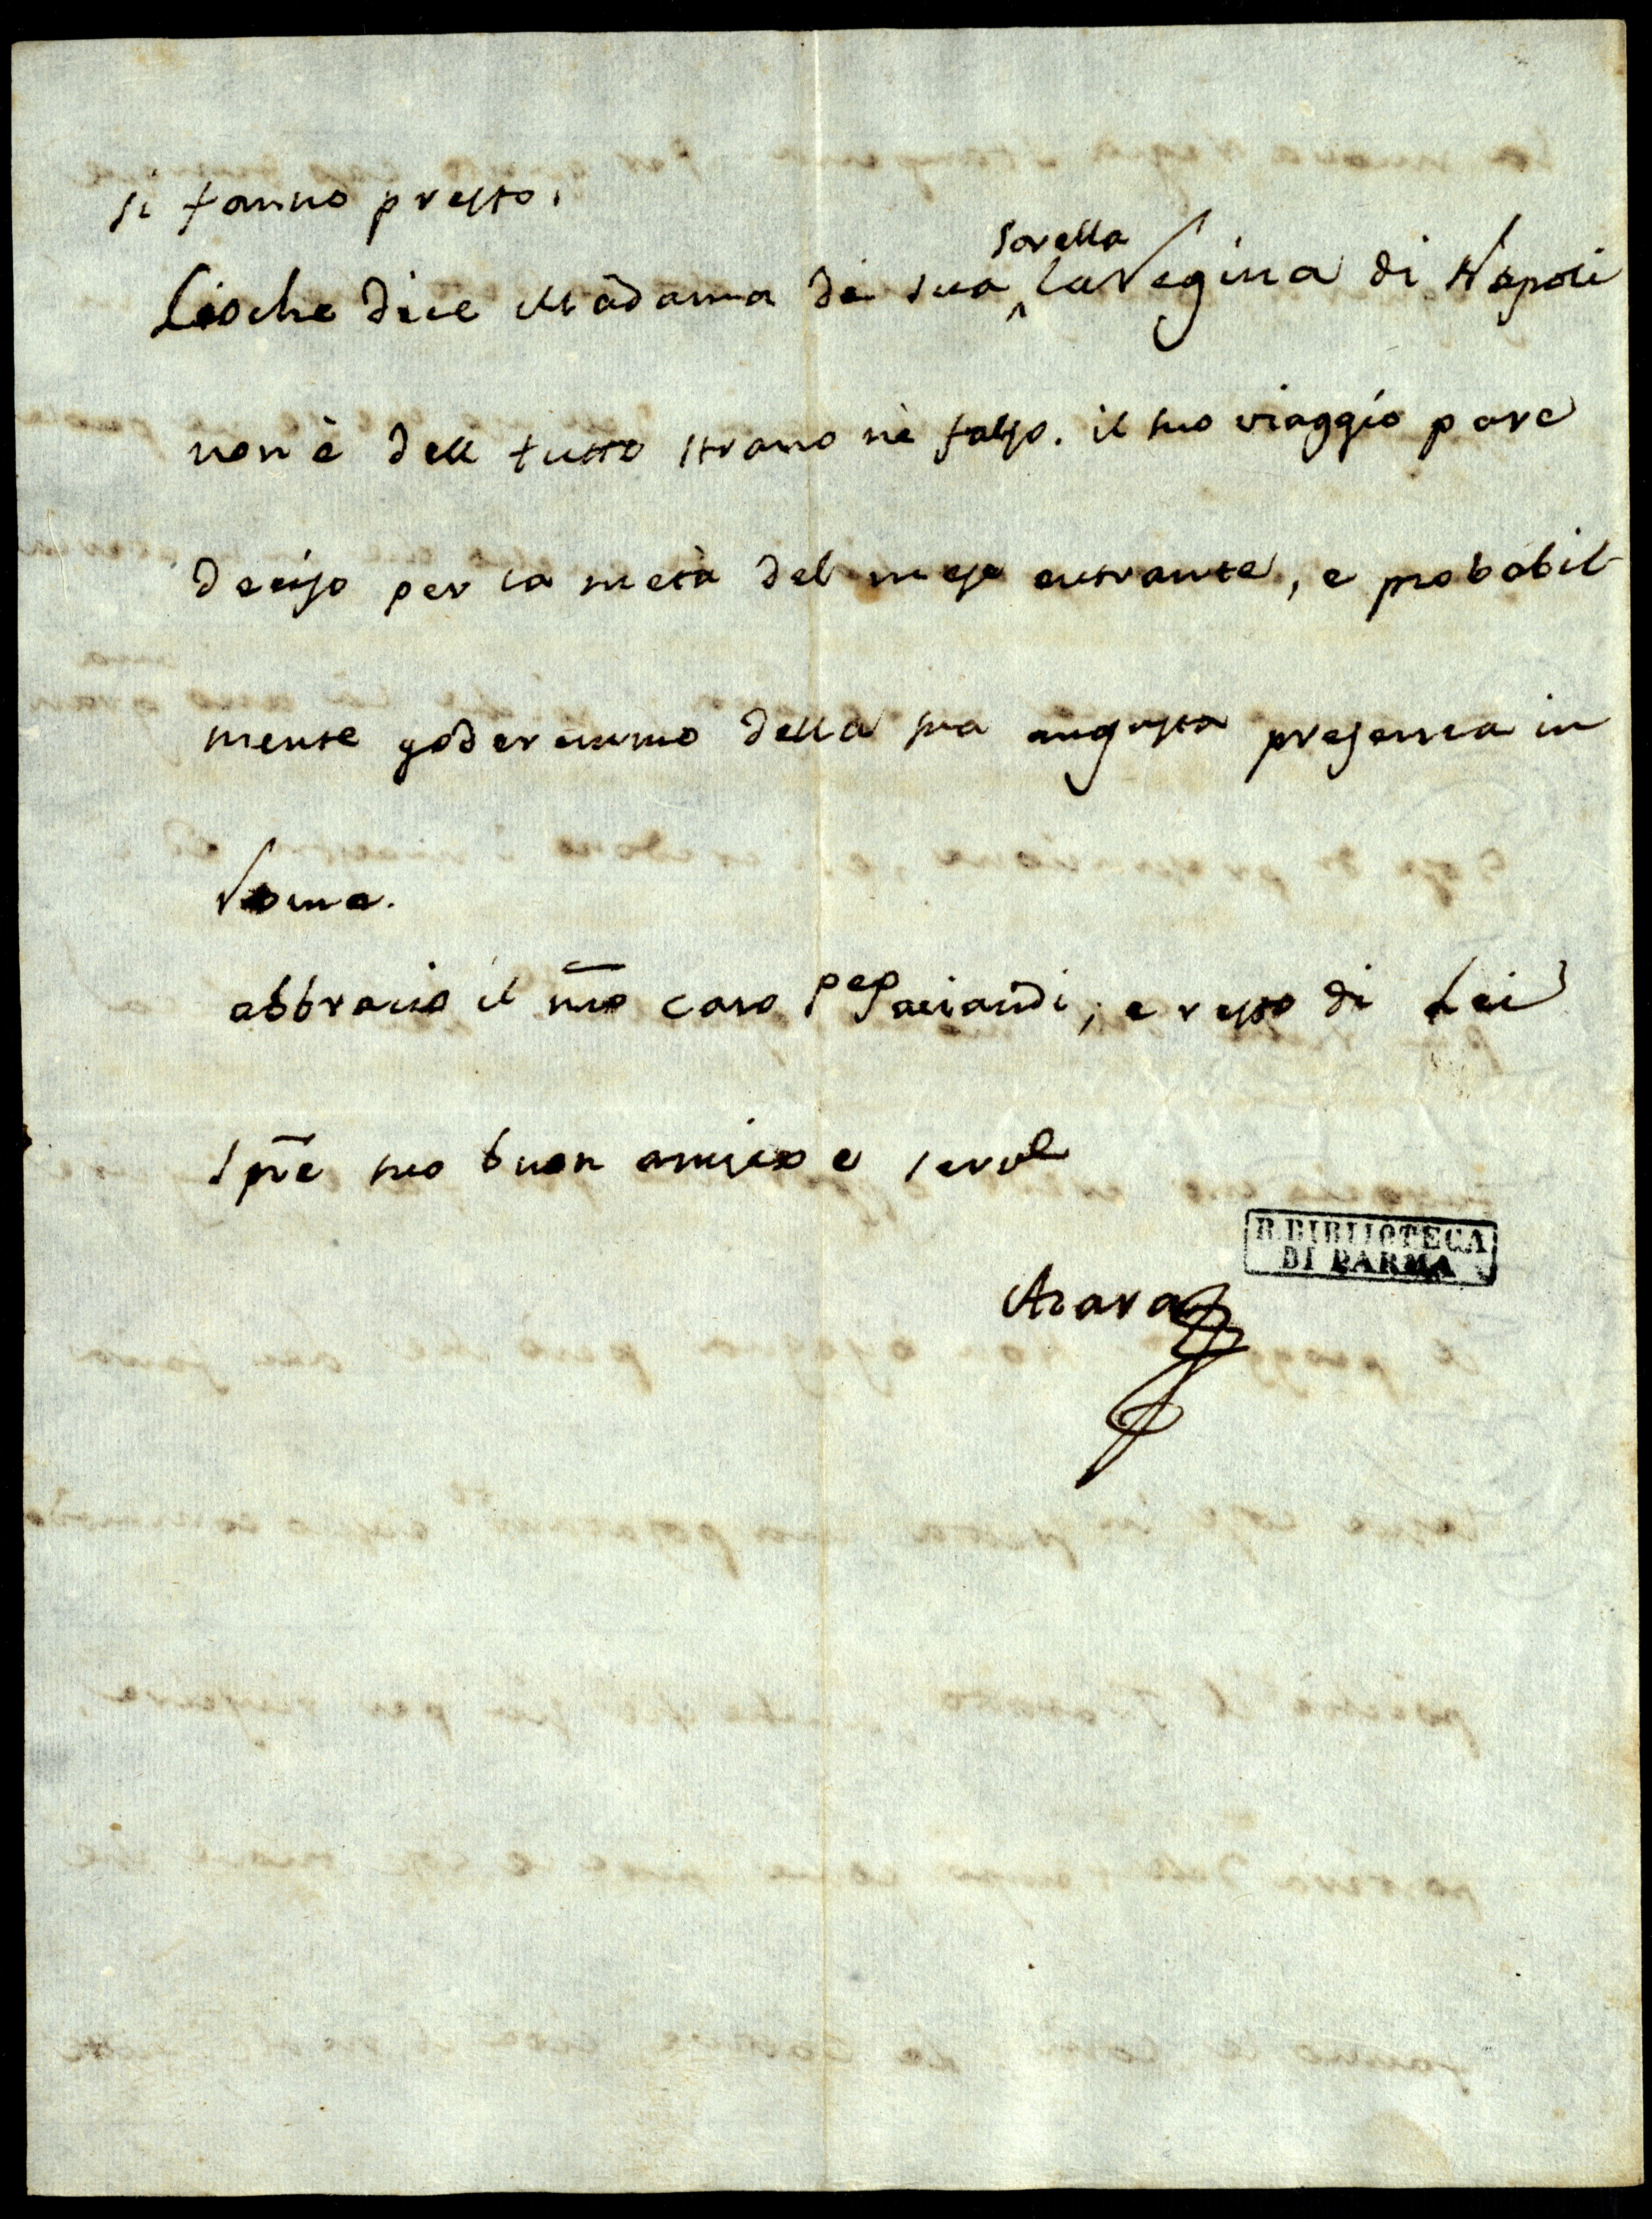 si fanno presto.
Cioche dice Madama di sua sorella la Regina di Napoli
non è dell tutto strano nè falso. il suo viaggio pare
deciso per la metà del mese entrante, e probabil-
mente goderemmo della sua augusta presenza in
Roma.
abbraccio il mio caro Pe Paciaudi; e resto di Lei
Spre suo buon amico e servе
Azara
R. BIBLIOTECA
DI PARMA